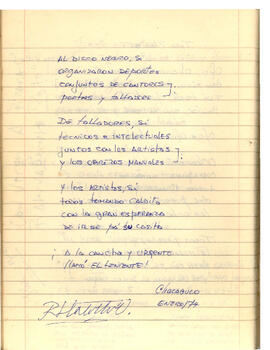 AL DIEGO NEGRO, SI
ORGANIZARON DEPORTES
CONJUNTOS DE CANTORES
POETAS Y
DE TALLADORES, SI
TECNICOS E INTELECTUALES
JUNTOS CON LOS ARTISTAS
Y LOS OBREROS MANUALES
Y LOS ARTISTAS, SI
TODOS TOMANDO CALDITO
CON LA GRAN ESPERANZA
DE IRSE PA' SU CASITA
¡A LA CANCHA Y URGENTE
LLAMÓ EL TENIENTE!
CHACABUCO
ENERO/74